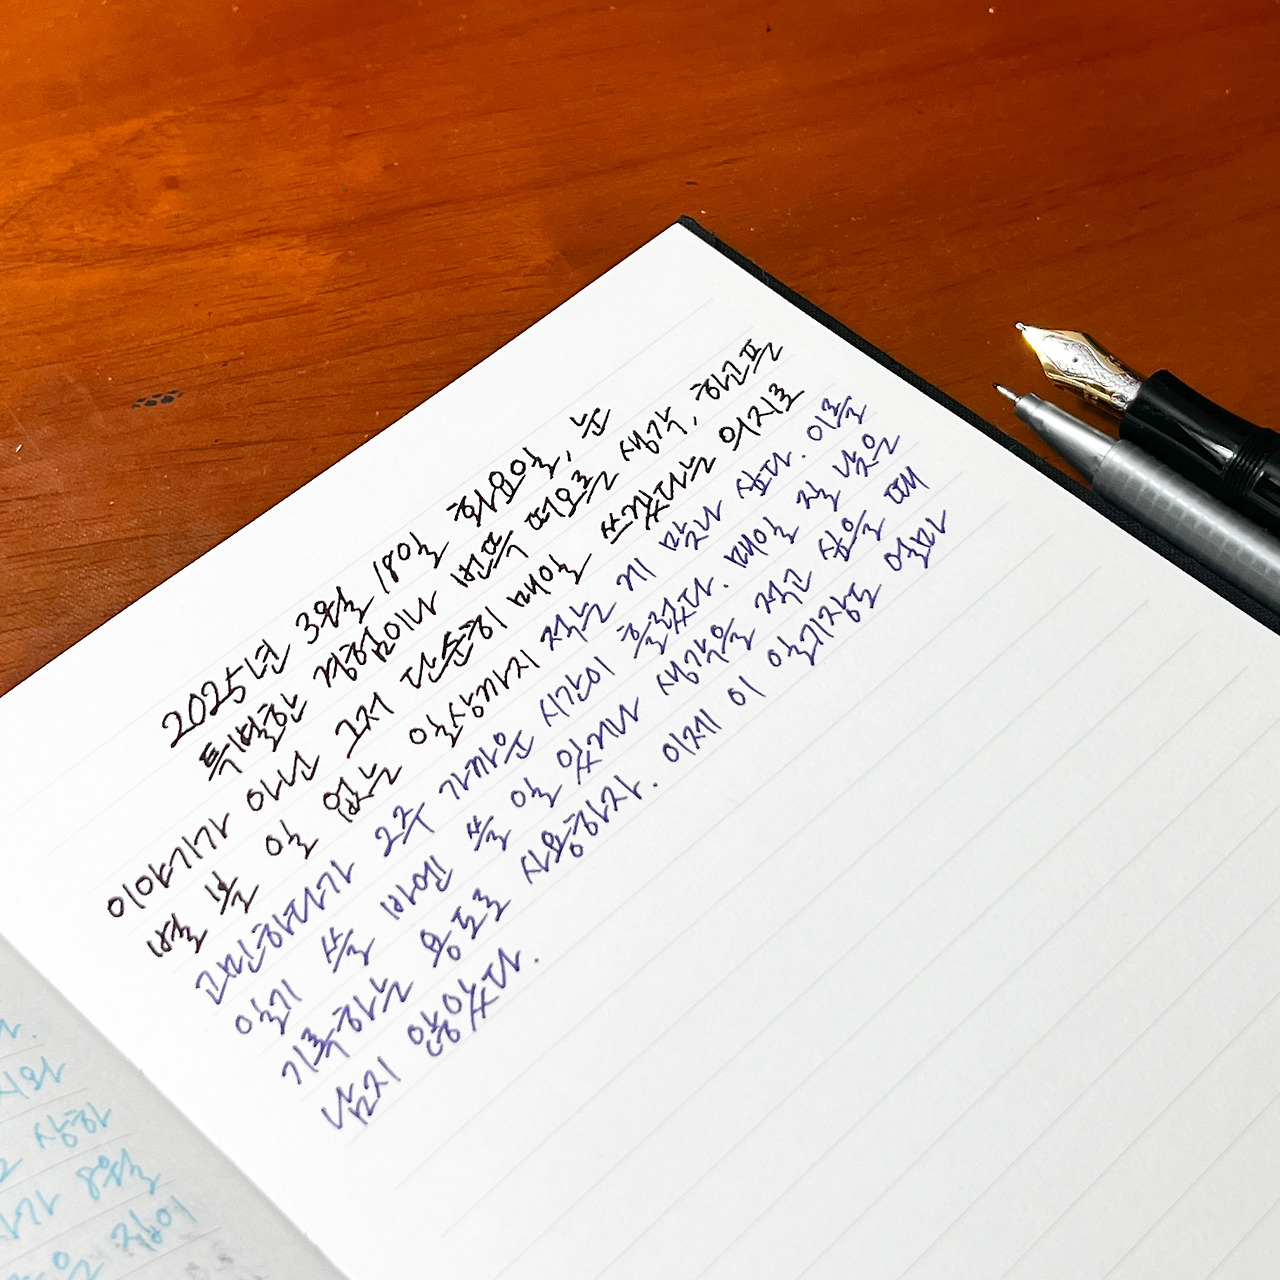 2025년 3월 18일 화요일, 눈
특별한 경험이나 번뜩 떠오른 생각, 하고픈
이야기가 아닌 그저 단순히 매일 쓰겠다는 의지로
별 볼 일 없는 일상까지 적는 게 맞나 싶다. 이를
고민하다가 2주 가까운 시간이 흘렀다. 매일 잘 낮은
일기 쓸 바엔 쓸 일 있거나 생각을 적고 싶을 때
기록하는 용도로 사용하자. 이제 이 일기장도 얼마
남지 않았다.
상하
8월